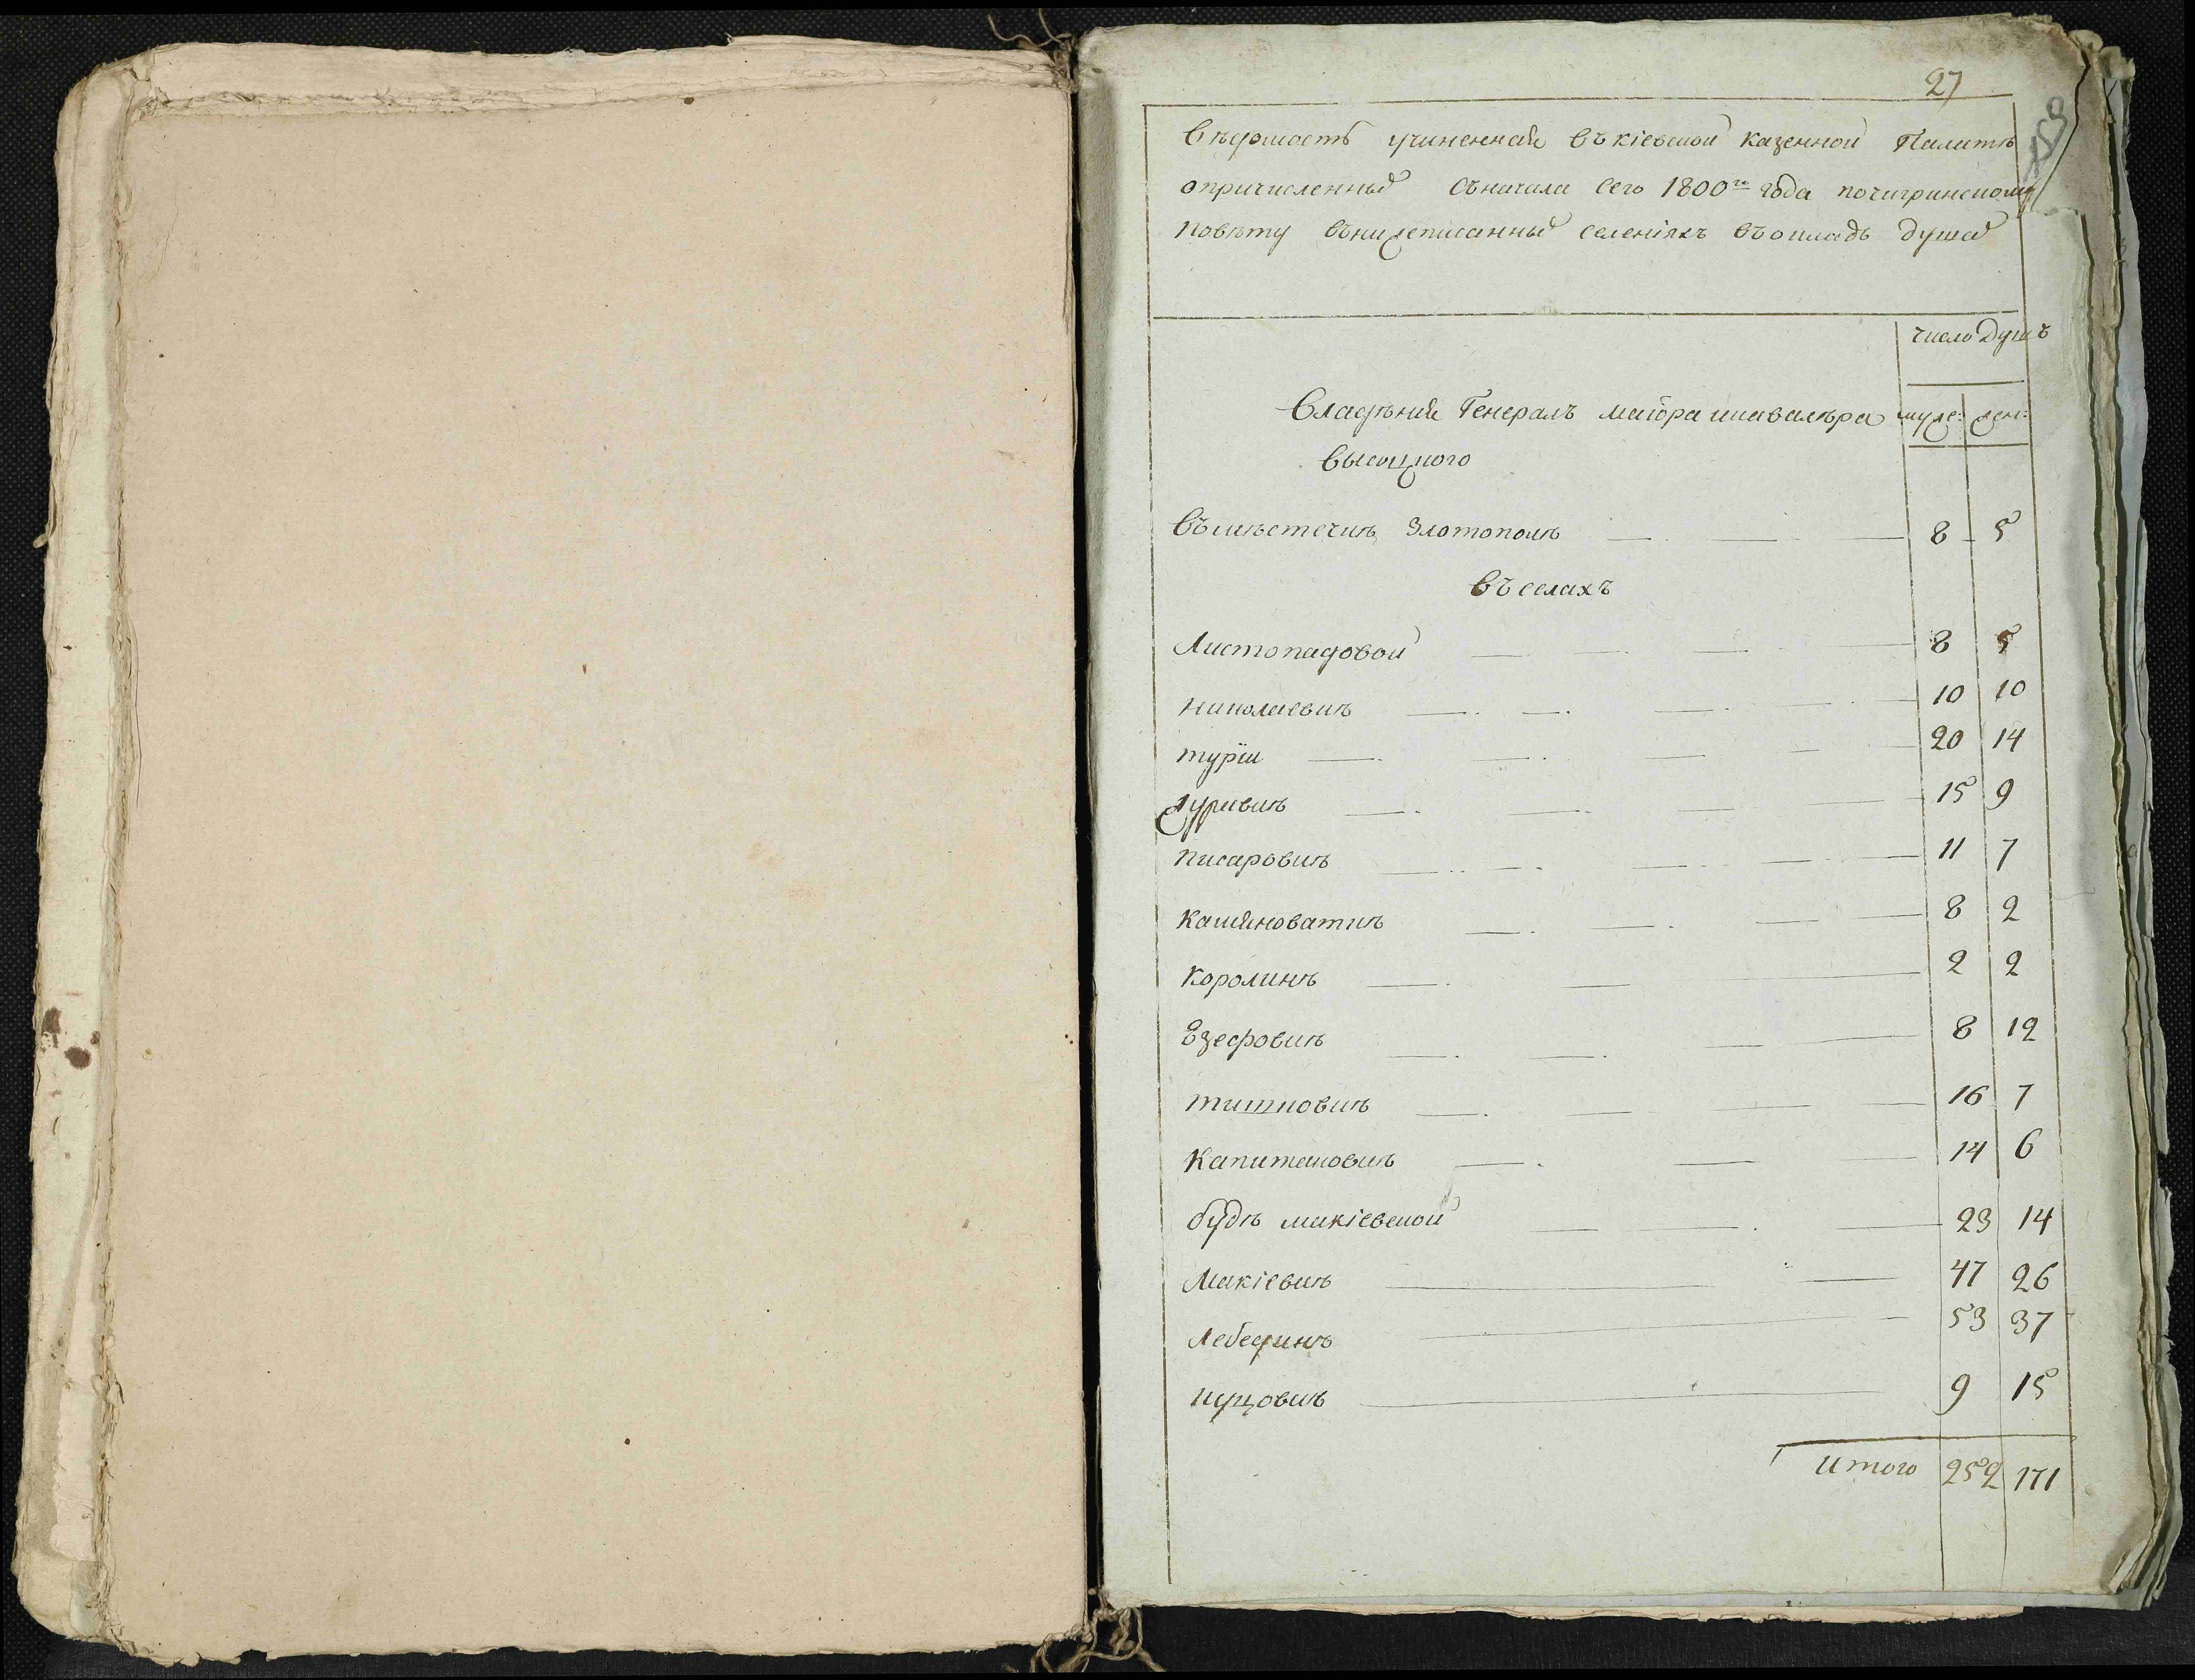 27
Вѣдомость учиненная въ кіевской казенной Палатѣ
опричисленных съначала сего 1800го года почигринскому
Повѣту внижеписанных селеніяхъ въокладъ душах
число душъ
владѣния Генералъ маіора икавалѣра муже: жен:
высоцкого
въмѣстечкѣ Златополѣ 8 5
въ селахъ
Листопадовой 8 5
николаевкѣ 10 10
туріи 20 14
журавкѣ 15 9
писаровкѣ 11 7
каменоваткѣ 8 2
королинѣ 2 2
Езефовкѣ 8 12
тишковкѣ 16 7
капитановкѣ 14 6
будѣ макіевской 23 14
Макіевкѣ 47 26
лебединѣ 53 37
куцовкѣ 9 15
итого 252 171